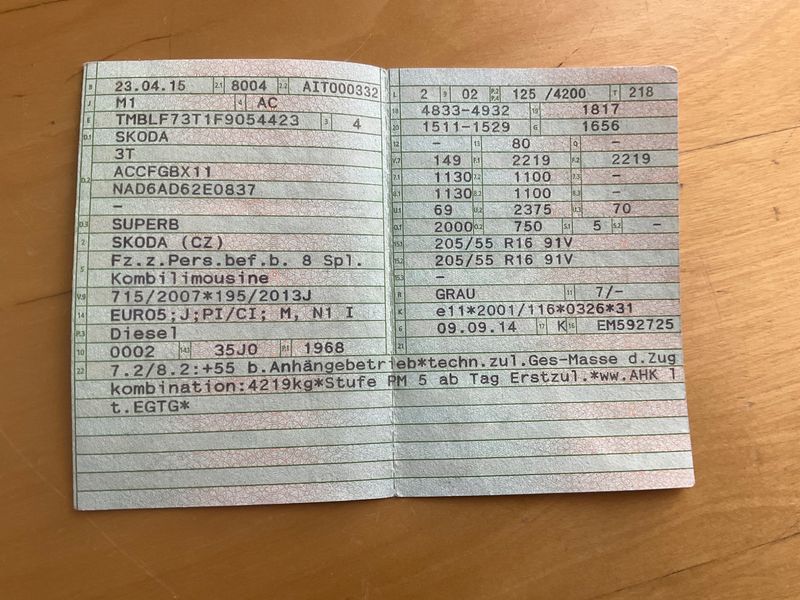 B 23.04.15 2.1 8004 2.2 AIT000332
J M1 4 AC
E TMBLF73T1F9054423 3 4
D.1 SKODA
3T
D.2 ACCFGBX11
NAD6AD62E0837
–
D.3 SUPERB
2 SKODA (CZ)
5 Fz.z.Pers.bef.b. 8 Spl.
Kombilimousine
V.9 715/2007*195/2013J
14 EURO5;J;PI/CI; M, N1 I
P.3 Diesel
10 0002 14.1 35J0 P.1 1968
L 2 9 02 P.2 P.4 125 /4200 T 218
18 4833-4932 19 1817
20 1511-1529 G 1656
12 – 13 80 Q –
V.7 149 F.1 2219 F.2 2219
7.1 1130 7.2 1100 7.3 –
8.1 1130 8.2 1100 8.3 –
U.1 69 U.2 2375 U.3 70
O.1 2000 O.2 750 S.1 5 S.2 –
15.1 205/55 R16 91V
15.2 205/55 R16 91V
15.3 –
R GRAU 11 7/–
K e11*2001/116*0326*31
6 09.09.14 17 K 16 EM592725
21
22 7.2/8.2:+55 b.Anhängebetrieb*techn.zul.Ges-Masse d.Zug
kombination:4219kg*Stufe PM 5 ab Tag Erstzul.*ww.AHK l
t.EGTG*